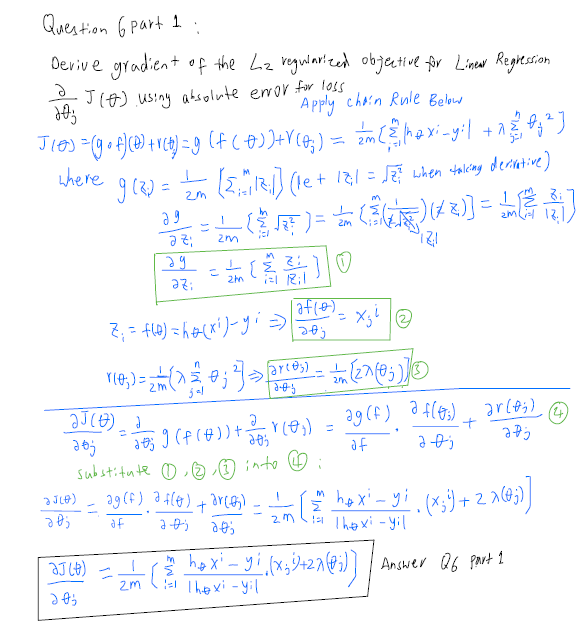 Question 6 part 1 :
Derive gradient of the L₂ regularized objective for Linear Regression
∂/∂θj J(θ) using absolute error for loss
Apply chain Rule Below
J(θ) = (g∘f)(θ) + r(θj) = g(f(θ)) + r(θj) = 1/2m [Σ_{i=1}^{m} |hθxⁱ - yⁱ| + λ Σ_{j=1}^{n} θj²]
where g(zi) = 1/2m [Σ_{i=1}^{m} |zi|] (let |zi| = √zi² when taking derivative)
∂g/∂zi = 1/2m (Σ_{i=1}^{m} √zi²) = 1/2m [Σ_{i=1}^{m} (1/2√zi²)(2zi)] = 1/2m [Σ_{i=1}^{m} zi/|zi|]
|zi|
∂g/∂zi = 1/2m [Σ_{i=1}^{m} zi/|zi|] ①
zi = f(θ) = hθ(xⁱ) - yⁱ ⇒ ∂f(θ)/∂θj = xjⁱ ②
r(θj) = 1/2m (λ Σ_{j=1}^{n} θj²] ⇒ ∂r(θj)/∂θj = 1/2m [2λ(θj)] ③
∂J(θ)/∂θj = ∂/∂θj g(f(θ)) + ∂/∂θj r(θj) = ∂g(f)/∂f · ∂f(θj)/∂θj + ∂r(θj)/∂θj ④
substitute ①, ②, ③ into ④ :
∂J(θ)/∂θj = ∂g(f)/∂f · ∂f(θ)/∂θj + ∂r(θj)/∂θj = 1/2m [Σ_{i=1}^{m} hθxⁱ - yⁱ/|hθxⁱ - yⁱ| · (xjⁱ) + 2λ(θj)]
∂J(θ)/∂θj = 1/2m (Σ_{i=1}^{m} hθxⁱ - yⁱ/|hθxⁱ - yⁱ| · (xjⁱ) + 2λ(θj)) Answer Q6 part 1